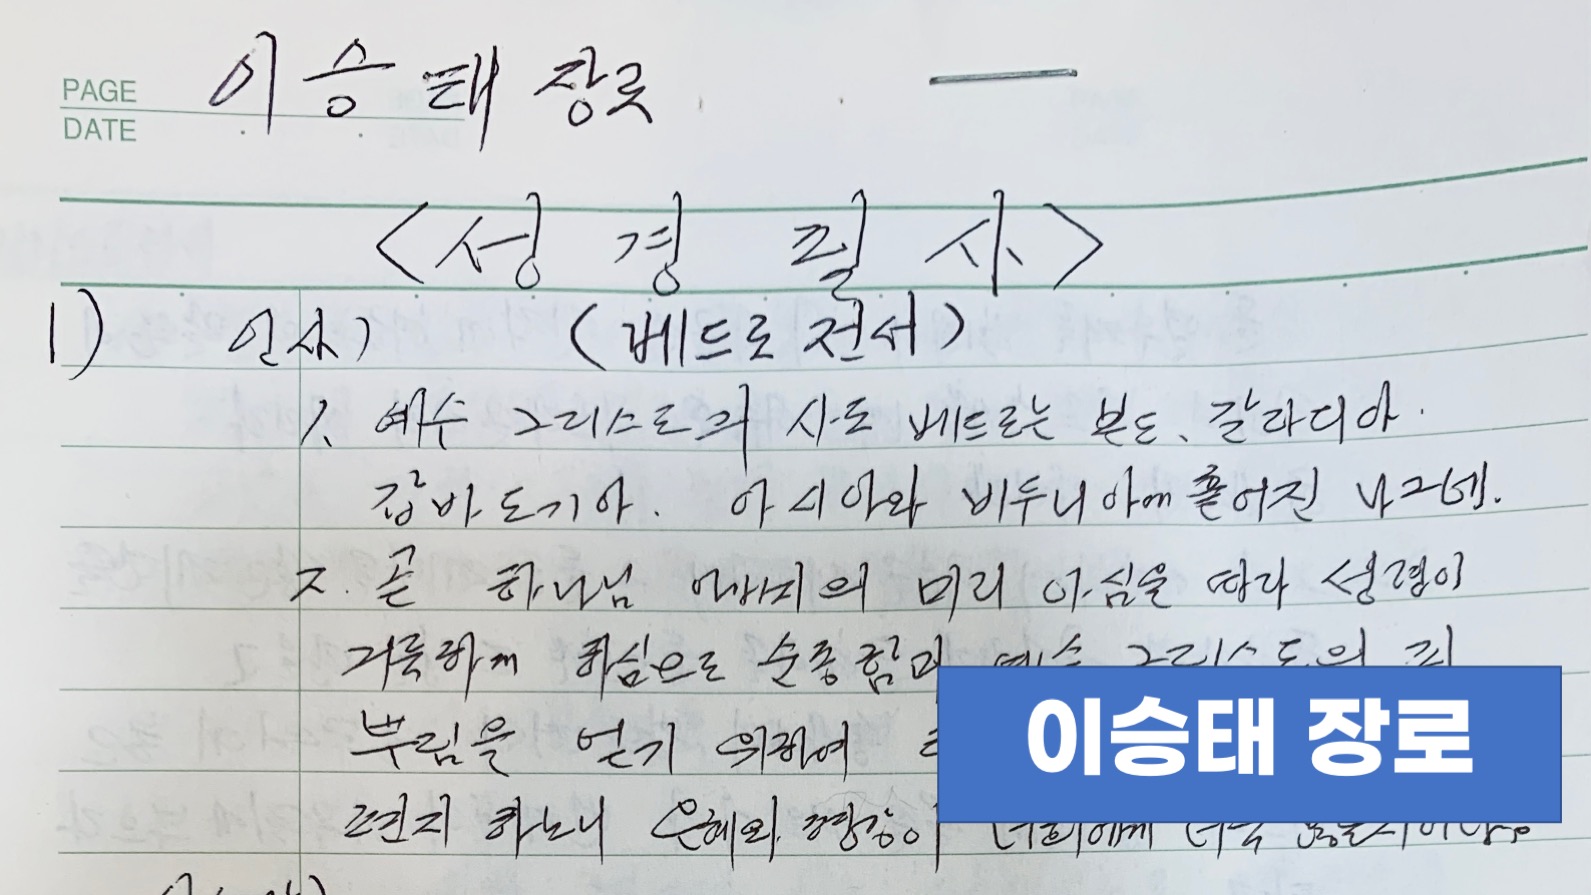 PAGE
DATE
이승태 장로
<성경필사>
1) 인사 (베드로전서)
1. 예수 그리스도의 사도 베드로는 본도, 갈라디아.
갑바도기아. 아시아와 비두니아에 흩어진 나그네.
2. 곧 하나님 아버지의 미리 아심을 따라 성령이
거룩하게 하심으로 순종함과 예수 그리스도의 피
뿌림을 얻기 위하여
련지 하노니 은혜와 평강이 너희에게 더욱
이승태 장로